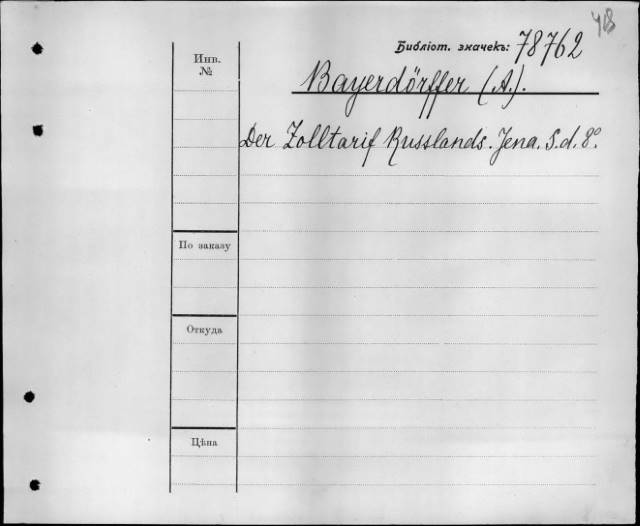 418
Библіот. значекъ: 78762
Инв.
№
Bayerdörffer (A.).
Der Zolltarif Russlands. Jena. S.d. 8º.
По заказу
Откуда
Цѣна